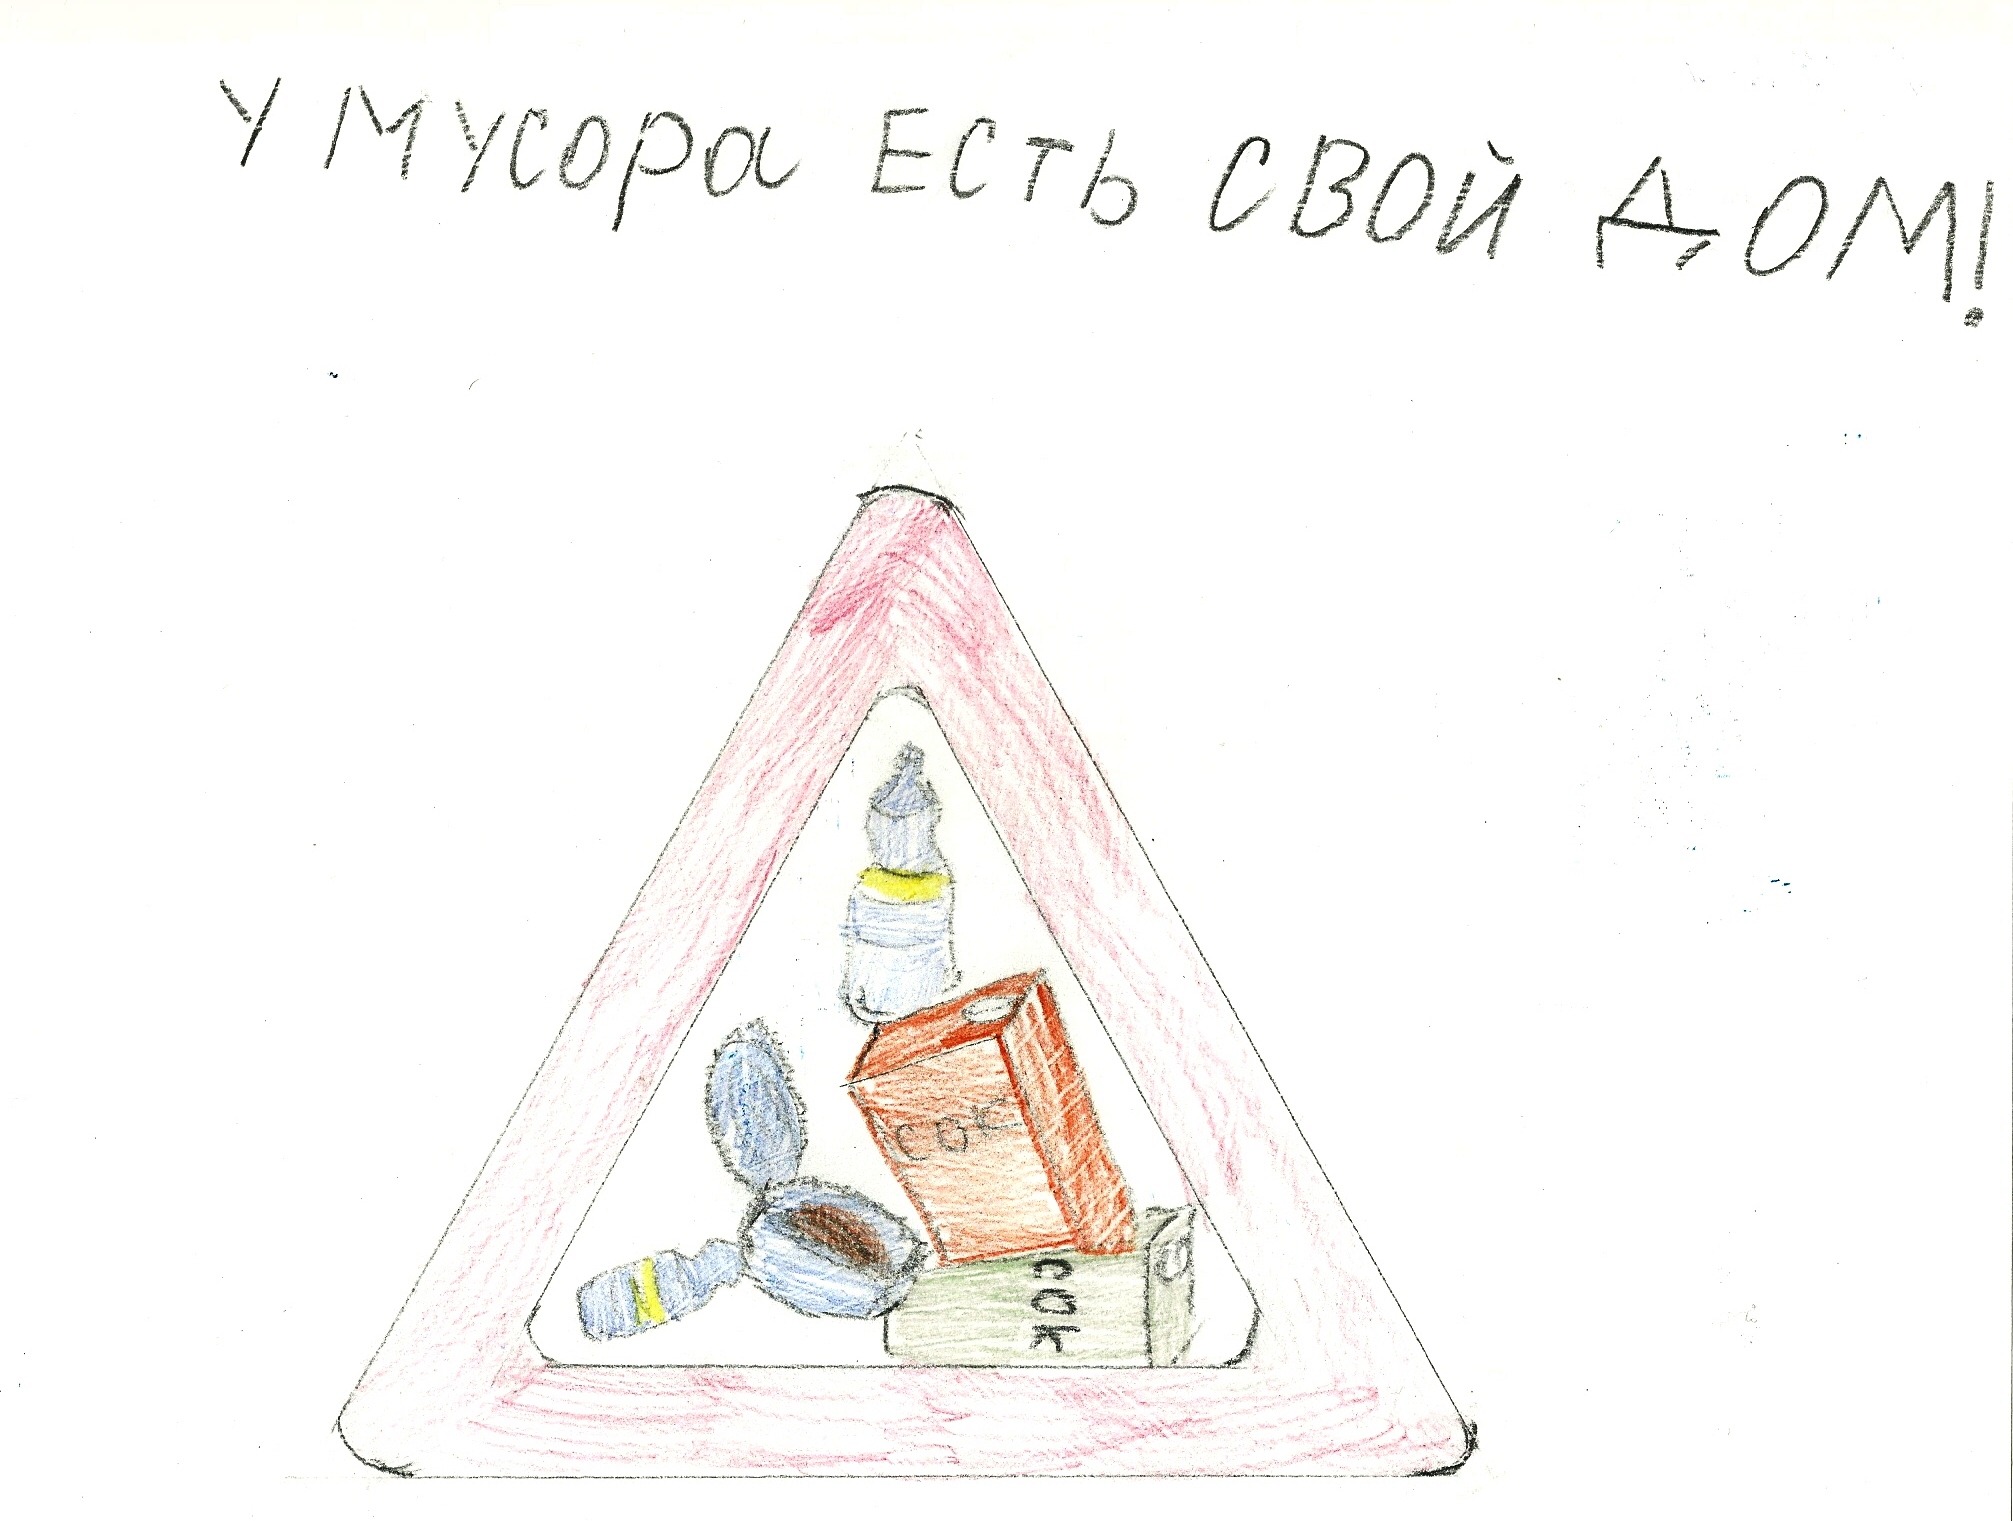 У МУСОРА ЕСТЬ СВОЙ ДОМ!
СОК
СОК